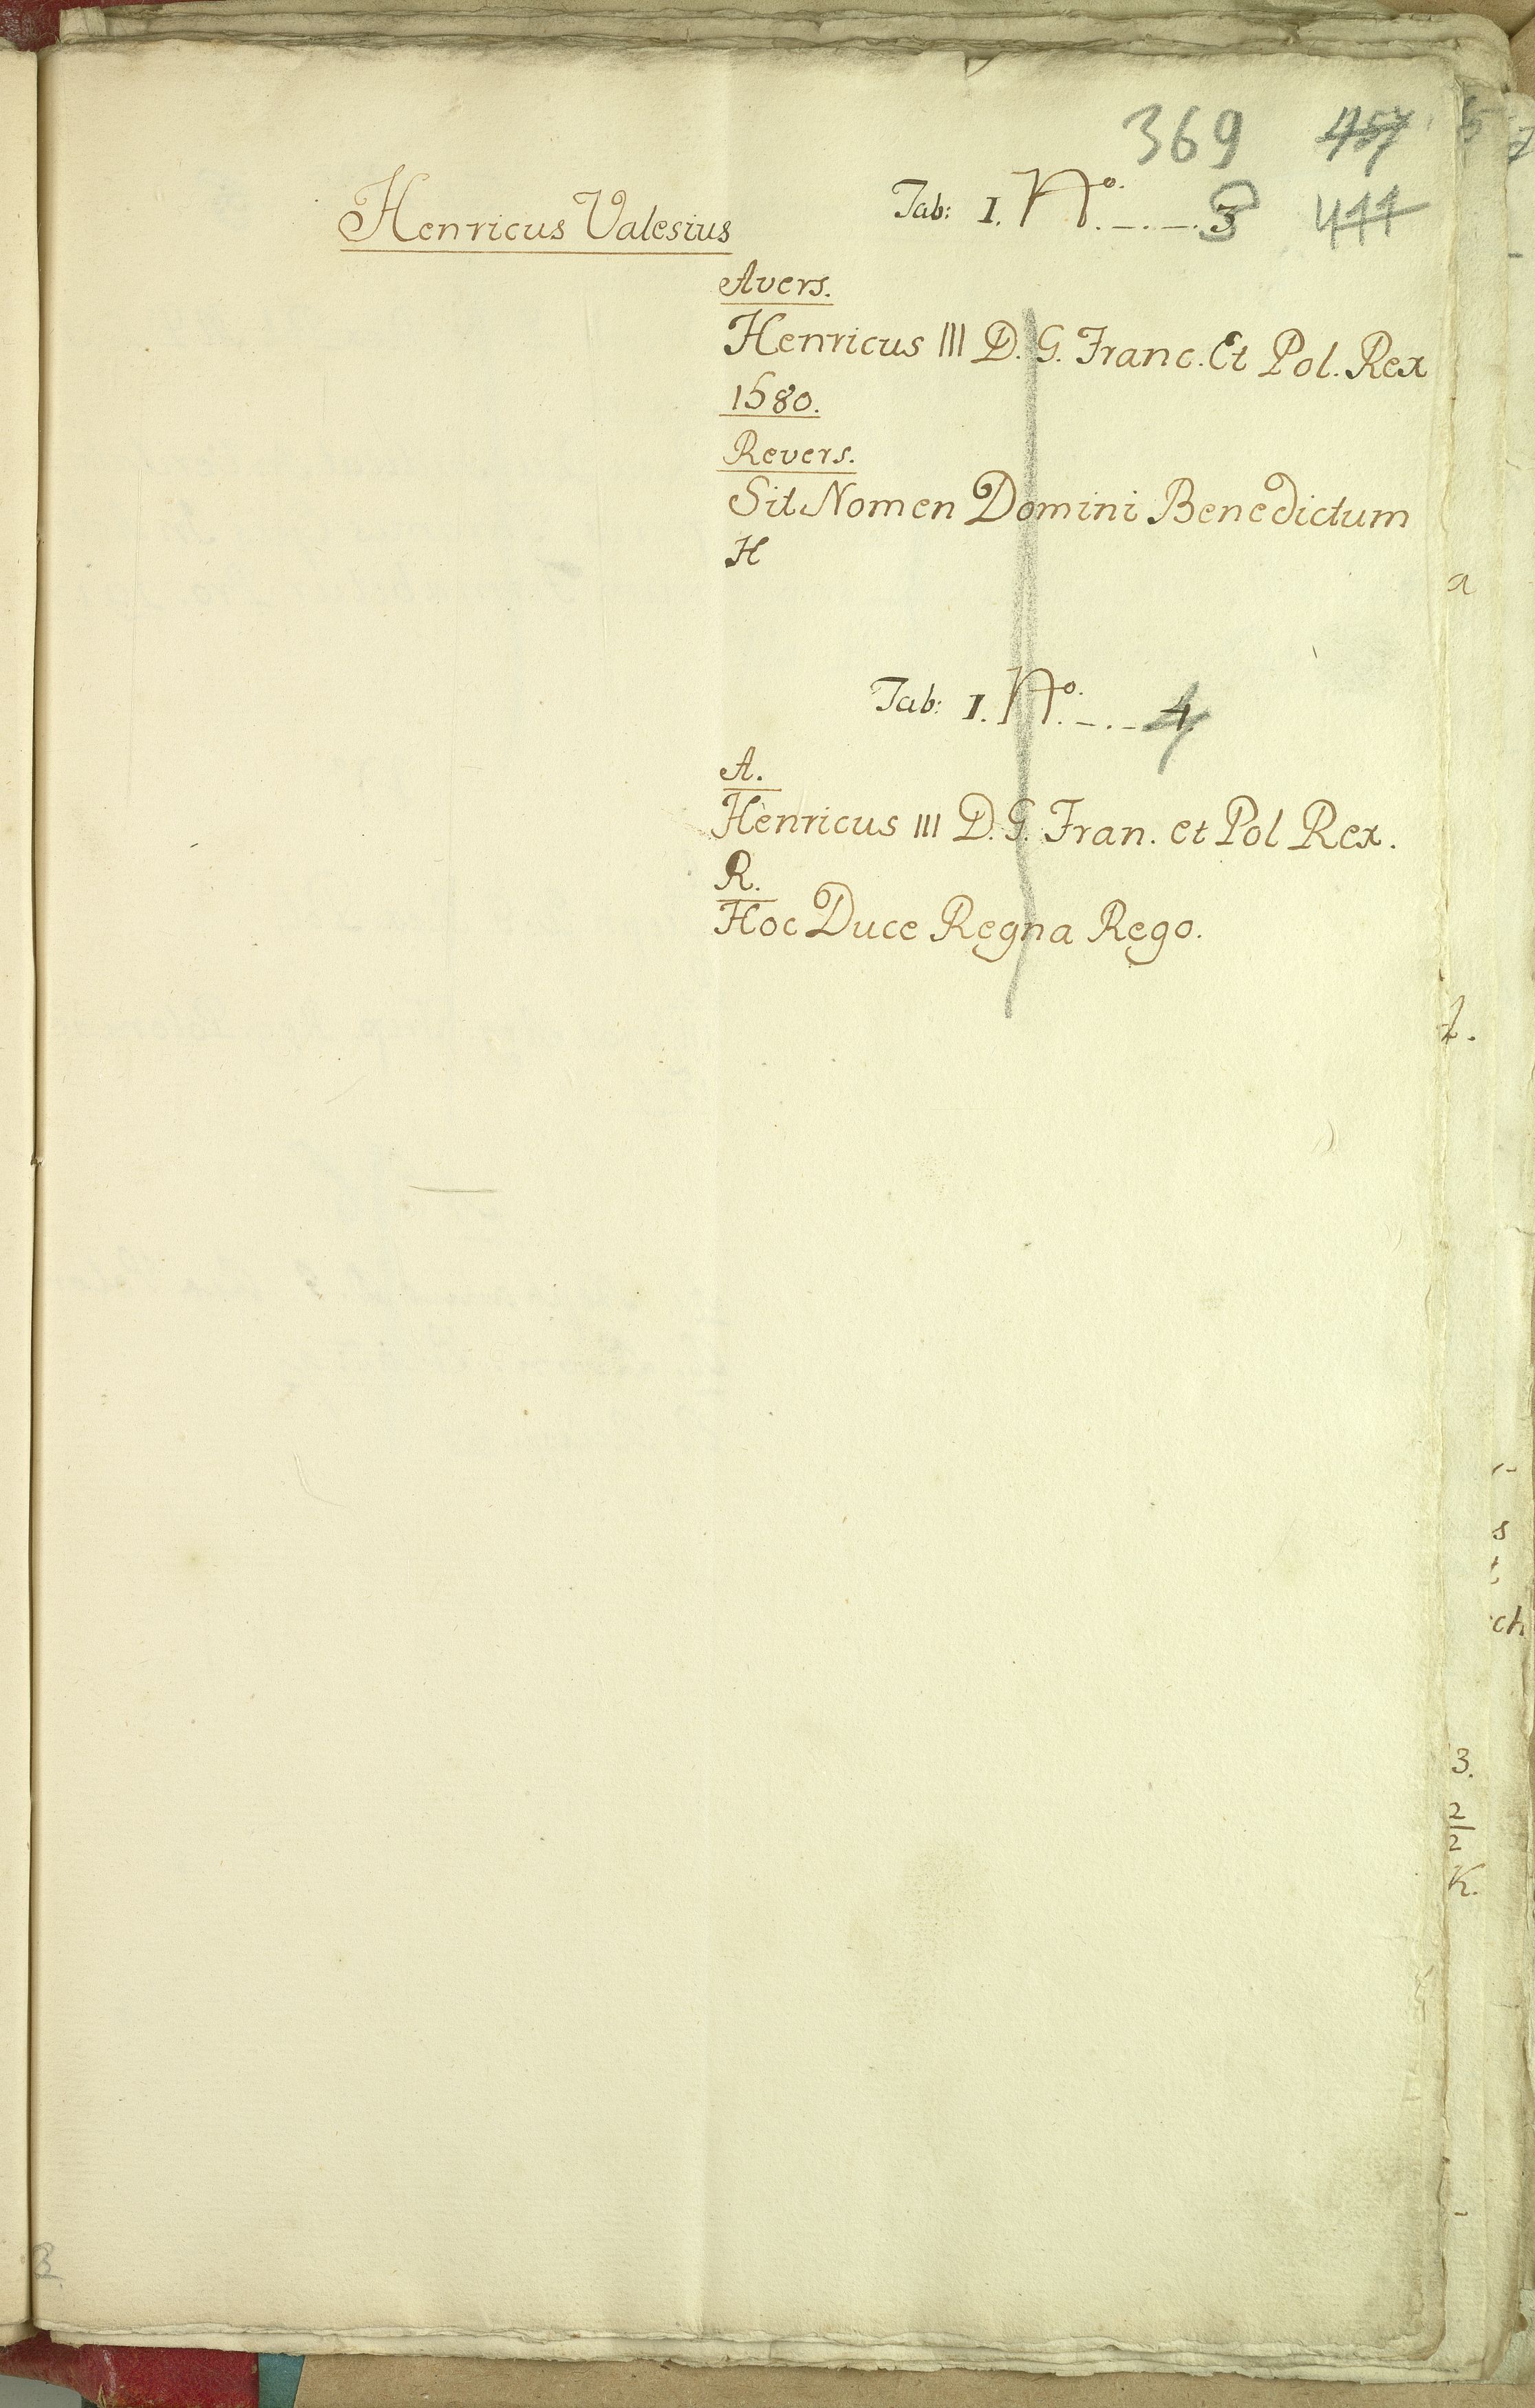 369 457
Henricus Valesius
Tab: I. No. _._. 3 444
Avers.
Henricus III D. G. Franc. Et Pol. Rex
1580.
Revers.
Sit Nomen Domini Benedictum
H
Tab: I. No. _._ 4
A.
Henricus III D. G. Fran. et Pol Rex.
R.
Hoc Duce Regna Rego.
a
t.
s
t
ch
3.
2
2
K.